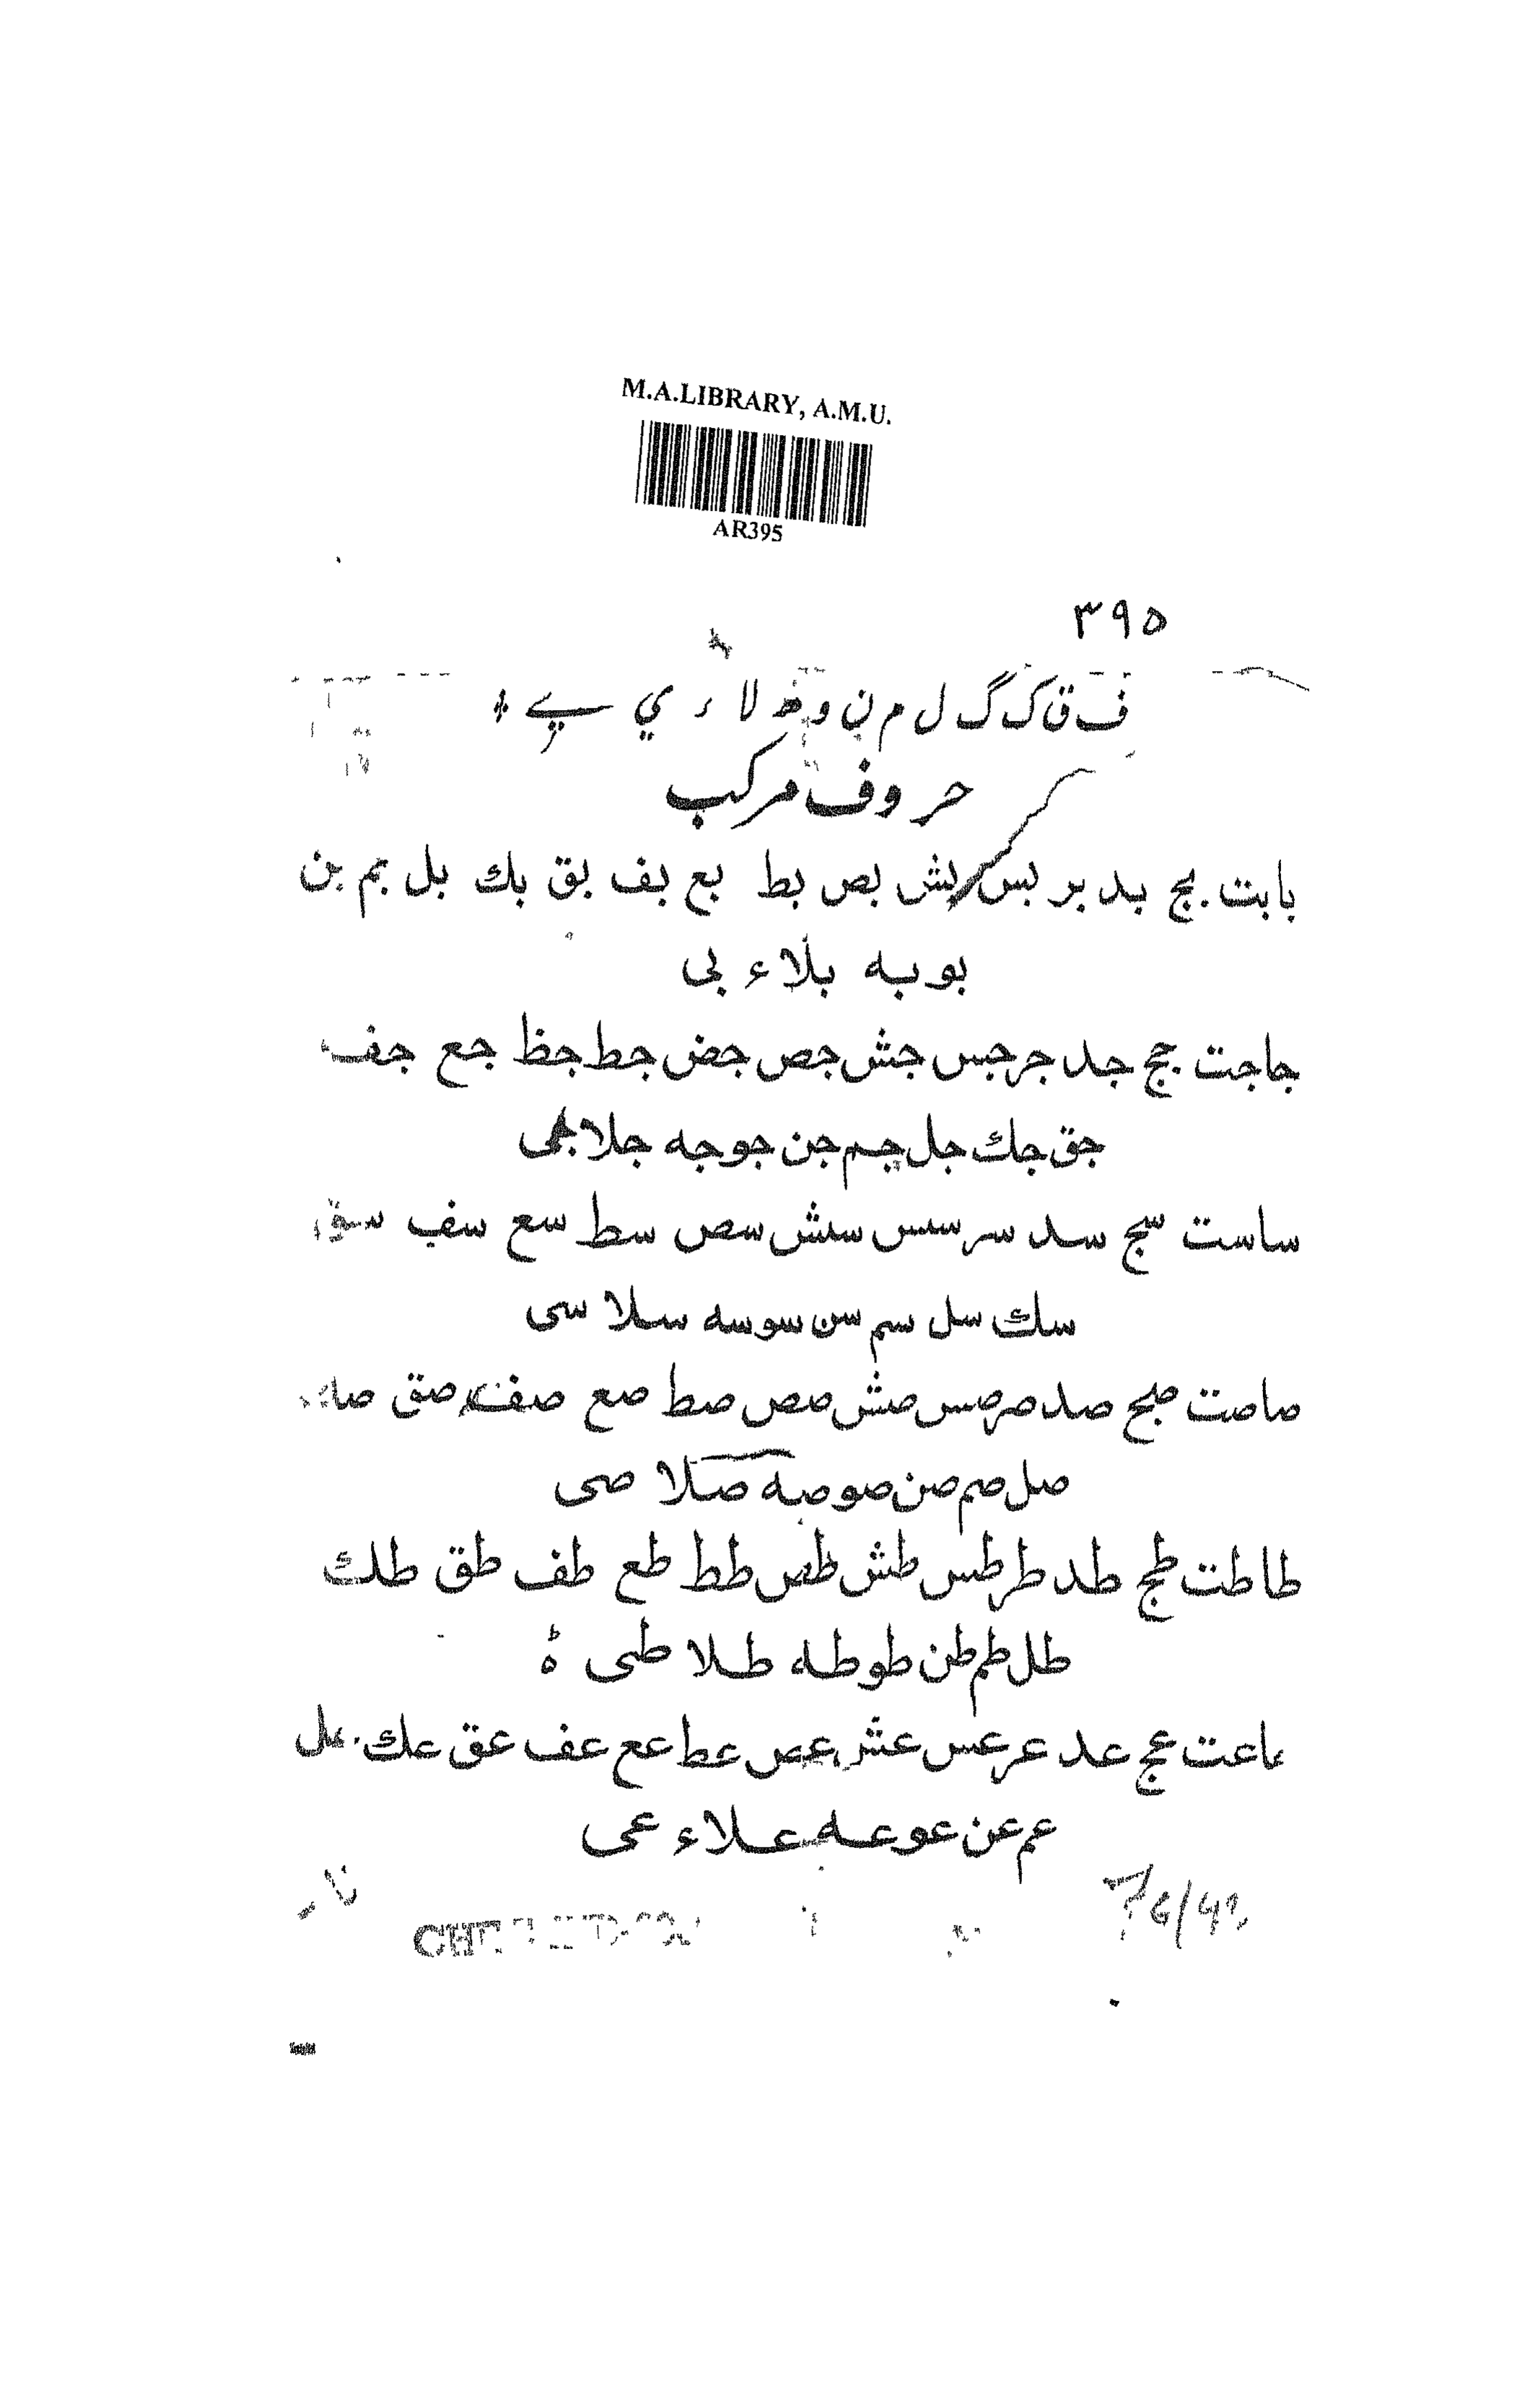 M.A.LIBRARY, A.M.U.
AR395
٣٩٥
ف ق ک گ ل م ن و ه لا ء ي ے
حروف مرکب
با بت بج بد بر بس بش بص بط بع بف بق بك بل بم بن
بو به بلا ء بى
جا جت جج جد جر جس جش جص جض جط جظ جع جف
جق جك جل جم جن جو جه جلا جى
سا ست سج سد سر سس سش سص سط سع سف سق
سك سل سم سن سو سه سلا سى
صا صت صج صد صر صس صش صص صط صع صف صق
صل صم صن صو صه صلا صى
طا طت طج طد طر طس طش طص طط طع طف طق طك
طل طم طن طو طه طلا طى
عا عت عج عد عر عس عش عص عط عع عف عق عك عل
عم عن عو عه علا ء عى